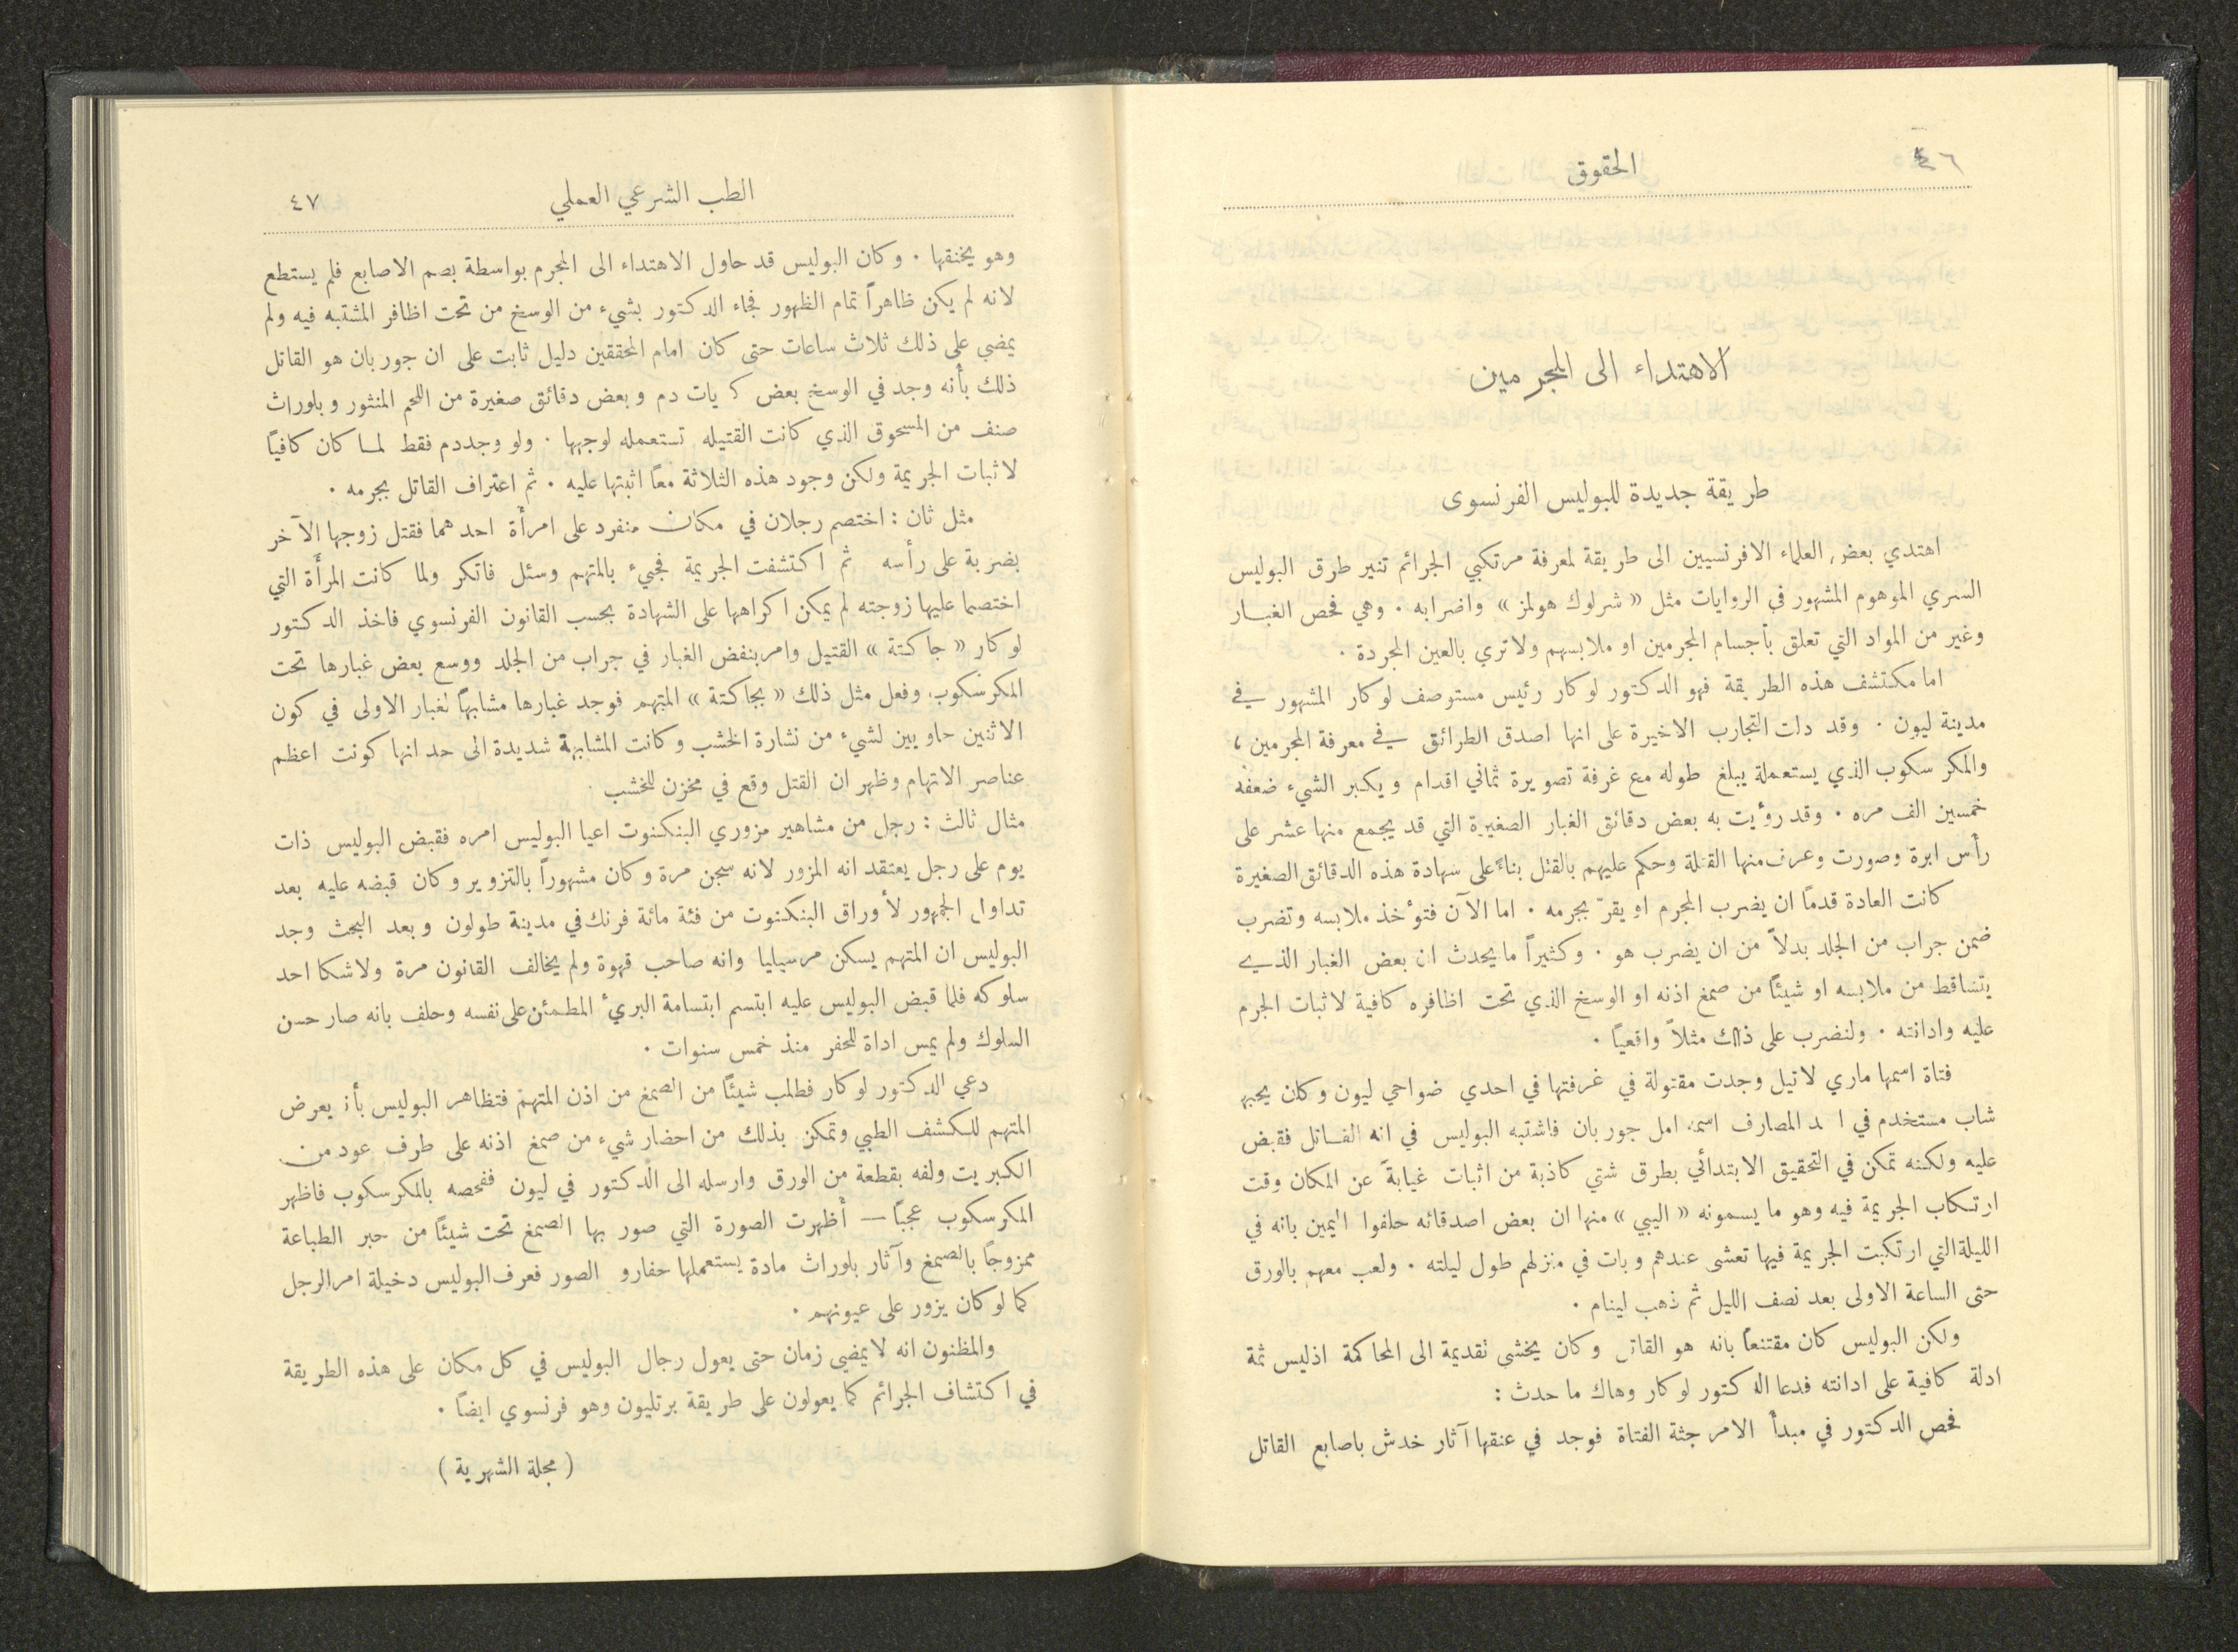 ٤٦
الحقوق
الاهتداء الى المجرمين
طريقة جديدة للبوليس الفرنسوى
اهتدي بعض العلماء الافرنسيين الى طريقة لمعرفة مرتكبي الجرائم تنير طرق البوليس
السري الموهوم المشهور في الروايات مثل « شرلوك هولمز » واضرابه . وهي فحص الغبار
وغير من المواد التي تعلق بأجسام المجرمين او ملابسهم ولا تري بالعين المجردة .
اما مكتشف هذه الطريقة فهو الدكتور لوكار رئيس مستوصف لوكار المشهور في
مدينة ليون . وقد دلت التجارب الاخيرة على انها اصدق الطرائق في معرفة المجرمين ،
والمكرسكوب الذي يستعملة يبلغ طوله مع غرفة تصويرة ثماني اقدام ويكبر الشيء ضعفه
خمسين الف مره . وقد رؤيت به بعض دقائق الغبار الصغيرة التي قد يجمع منها عشر على
رأس ابرة وصورت وعرف منها القتلة وحكم عليهم بالقتل بناءً على شهادة هذه الدقائق الصغيرة
كانت العادة قدمًا ان يضرب المجرم او يقرّ بجرمه . اما الآن فتؤخذ ملابسه وتضرب
ضمن جراب من الجلد بدلاً من ان يضرب هو . وكثيراً ما يحدث ان بعض الغبار الذي
يتساقط من ملابسه او شيئًا من صمغ اذنه او الوسخ الذي تحت اظافره كافية لاثبات الجرم
عليه وادانته . ولنضرب على ذلك مثلاً واقعيًا .
فتاة اسمها ماري لاتيل وجدت مقتولة في غرفتها في احدي ضواحي ليون وكان يحبها
شاب مستخدم في المصارف اسمه امل جوربان فاشتبه البوليس في انه القاتل فقبض
عليه ولكنه تمكن في التحقيق الابتدائي بطرق شتي كاذبة من اثبات غيابة عن المكان وقت
ارتكاب الجريمة فيه وهو ما يسمونه « اليبي » منها ان بعض اصدقائه حلفوا اليمين بانه في
الليلة التي ارتكبت الجريمة فيها تعشى عندهم وبات في منزلهم طول ليلته . ولعب معهم بالورق
حتى الساعة الاولى بعد نصف الليل ثم ذهب لينام .
ولكن البوليس كان مقتنعاً بانه هو القاتل وكان يخشى تقديمة الى المحاكمة اذ ليس ثمة
ادلة كافية على ادانته فدعا الدكتور لوكار وهاك ما حدث :
فحص الدكتور في مبدأ الامر جثة الفتاة فوجد في عنقها آثار خدش باصابع القاتل
الطب الشرعي العملي
٤٧
وهو يخنقها . وكان البوليس قد حاول الاهتداء الى المجرم بواسطة بصم الاصابع فلم يستطع
لانه لم يكن ظاهراً تمام الظهور فجاء الدكتور بشيء من الوسخ من تحت اظافر المشتبه فيه ولم
يمضي على ذلك ثلاث ساعات حتى كان امام المحققين دليل ثابت على ان جوربان هو القاتل
ذلك بأنه وجد في الوسخ بعض يات دم وبعض دقائق صغيرة من اللحم المنثور وبلوراث
صنف من المسحوق الذي كانت القتيله تستعمله لوجهها . ولو وجد دم فقط لما كان كافيًا
لاثبات الجريمة ولكن وجود هذه الثلاثة معًا اثبتها عليه . ثم اعتراف القاتل بجرمه .
مثل ثان : اختصم رجلان في مكان منفرد على امرأة احدهما فقتل زوجها الآخر
بضربة على رأسه ثم اكتشفت الجريمة فجيء بالمتهم وسئل فانكر ولما كانت المرأة التي
اختصما عليها زوجته لم يمكن اكراهها على الشهادة بحسب القانون الفرنسوي فاخذ الدكتور
لوكار « جاكتة » القتيل وامر بنفض الغبار في جراب من الجلد ووسع بعض غبارها تحت
المكرسكوب وفعل مثل ذلك « بجاكتة » المتهم فوجد غبارها مشابهًا لغبار الاولى في كون
الاثنين حاويين لشيء من نشارة الخشب وكانت المشابهة شديدة الى حد انها كونت اعظم
عناصر الاتهام وظهر ان القتل وقع في مخزن للخشب
مثال ثالث : رجل من مشاهير مزوري البنكنوت اعيا البوليس امره فقبض البوليس ذات
يوم على رجل يعتقد انه المزور لانه سجن مرة وكان مشهوراً بالتزوير وكان قبضه عليه بعد
تداول الجمهور لأوراق البنكنوت من فئة مائة فرنك في مدينة طولون وبعد البحث وجد
البوليس ان المتهم يسكن مرسيليا وانه صاحب قهوة ولم يخالف القانون مرة ولا شكا احد
سلوكه فلما قبض البوليس عليه ابتسم ابتسامة البريء المطمئن على نفسه وحلف بانه صار حسن
السلوك ولم يمس اداة للحفر منذ خمس سنوات .
دعي الدكتور لوكار فطلب شيئًا من الصمغ من اذن المتهم فتظاهر البوليس بأن يعرض
المتهم للكشف الطبي وتمكن بذلك من احضار شيء من صمغ اذنه على طرف عود من
الكبريت ولفه بقطعة من الورق وارسله الى الدكتور في ليون ففحصه بالمكرسكوب فاظهر
المكرسكوب عجبًا — أظهرت الصورة التي صور بها الصمغ تحت شيئًا من حبر الطباعة
ممزوجًا بالصمغ وآثار بلوراث مادة يستعملها حفارو الصور فعرف البوليس دخيلة امر الرجل
كما لو كان يزور على عيونهم .
والمظنون انه لا يمضي زمان حتى يعول رجال البوليس في كل مكان على هذه الطريقة
في اكتشاف الجرائم كما يعولون على طريقة برتليون وهو فرنسوي ايضاً .
( مجلة الشهرية )